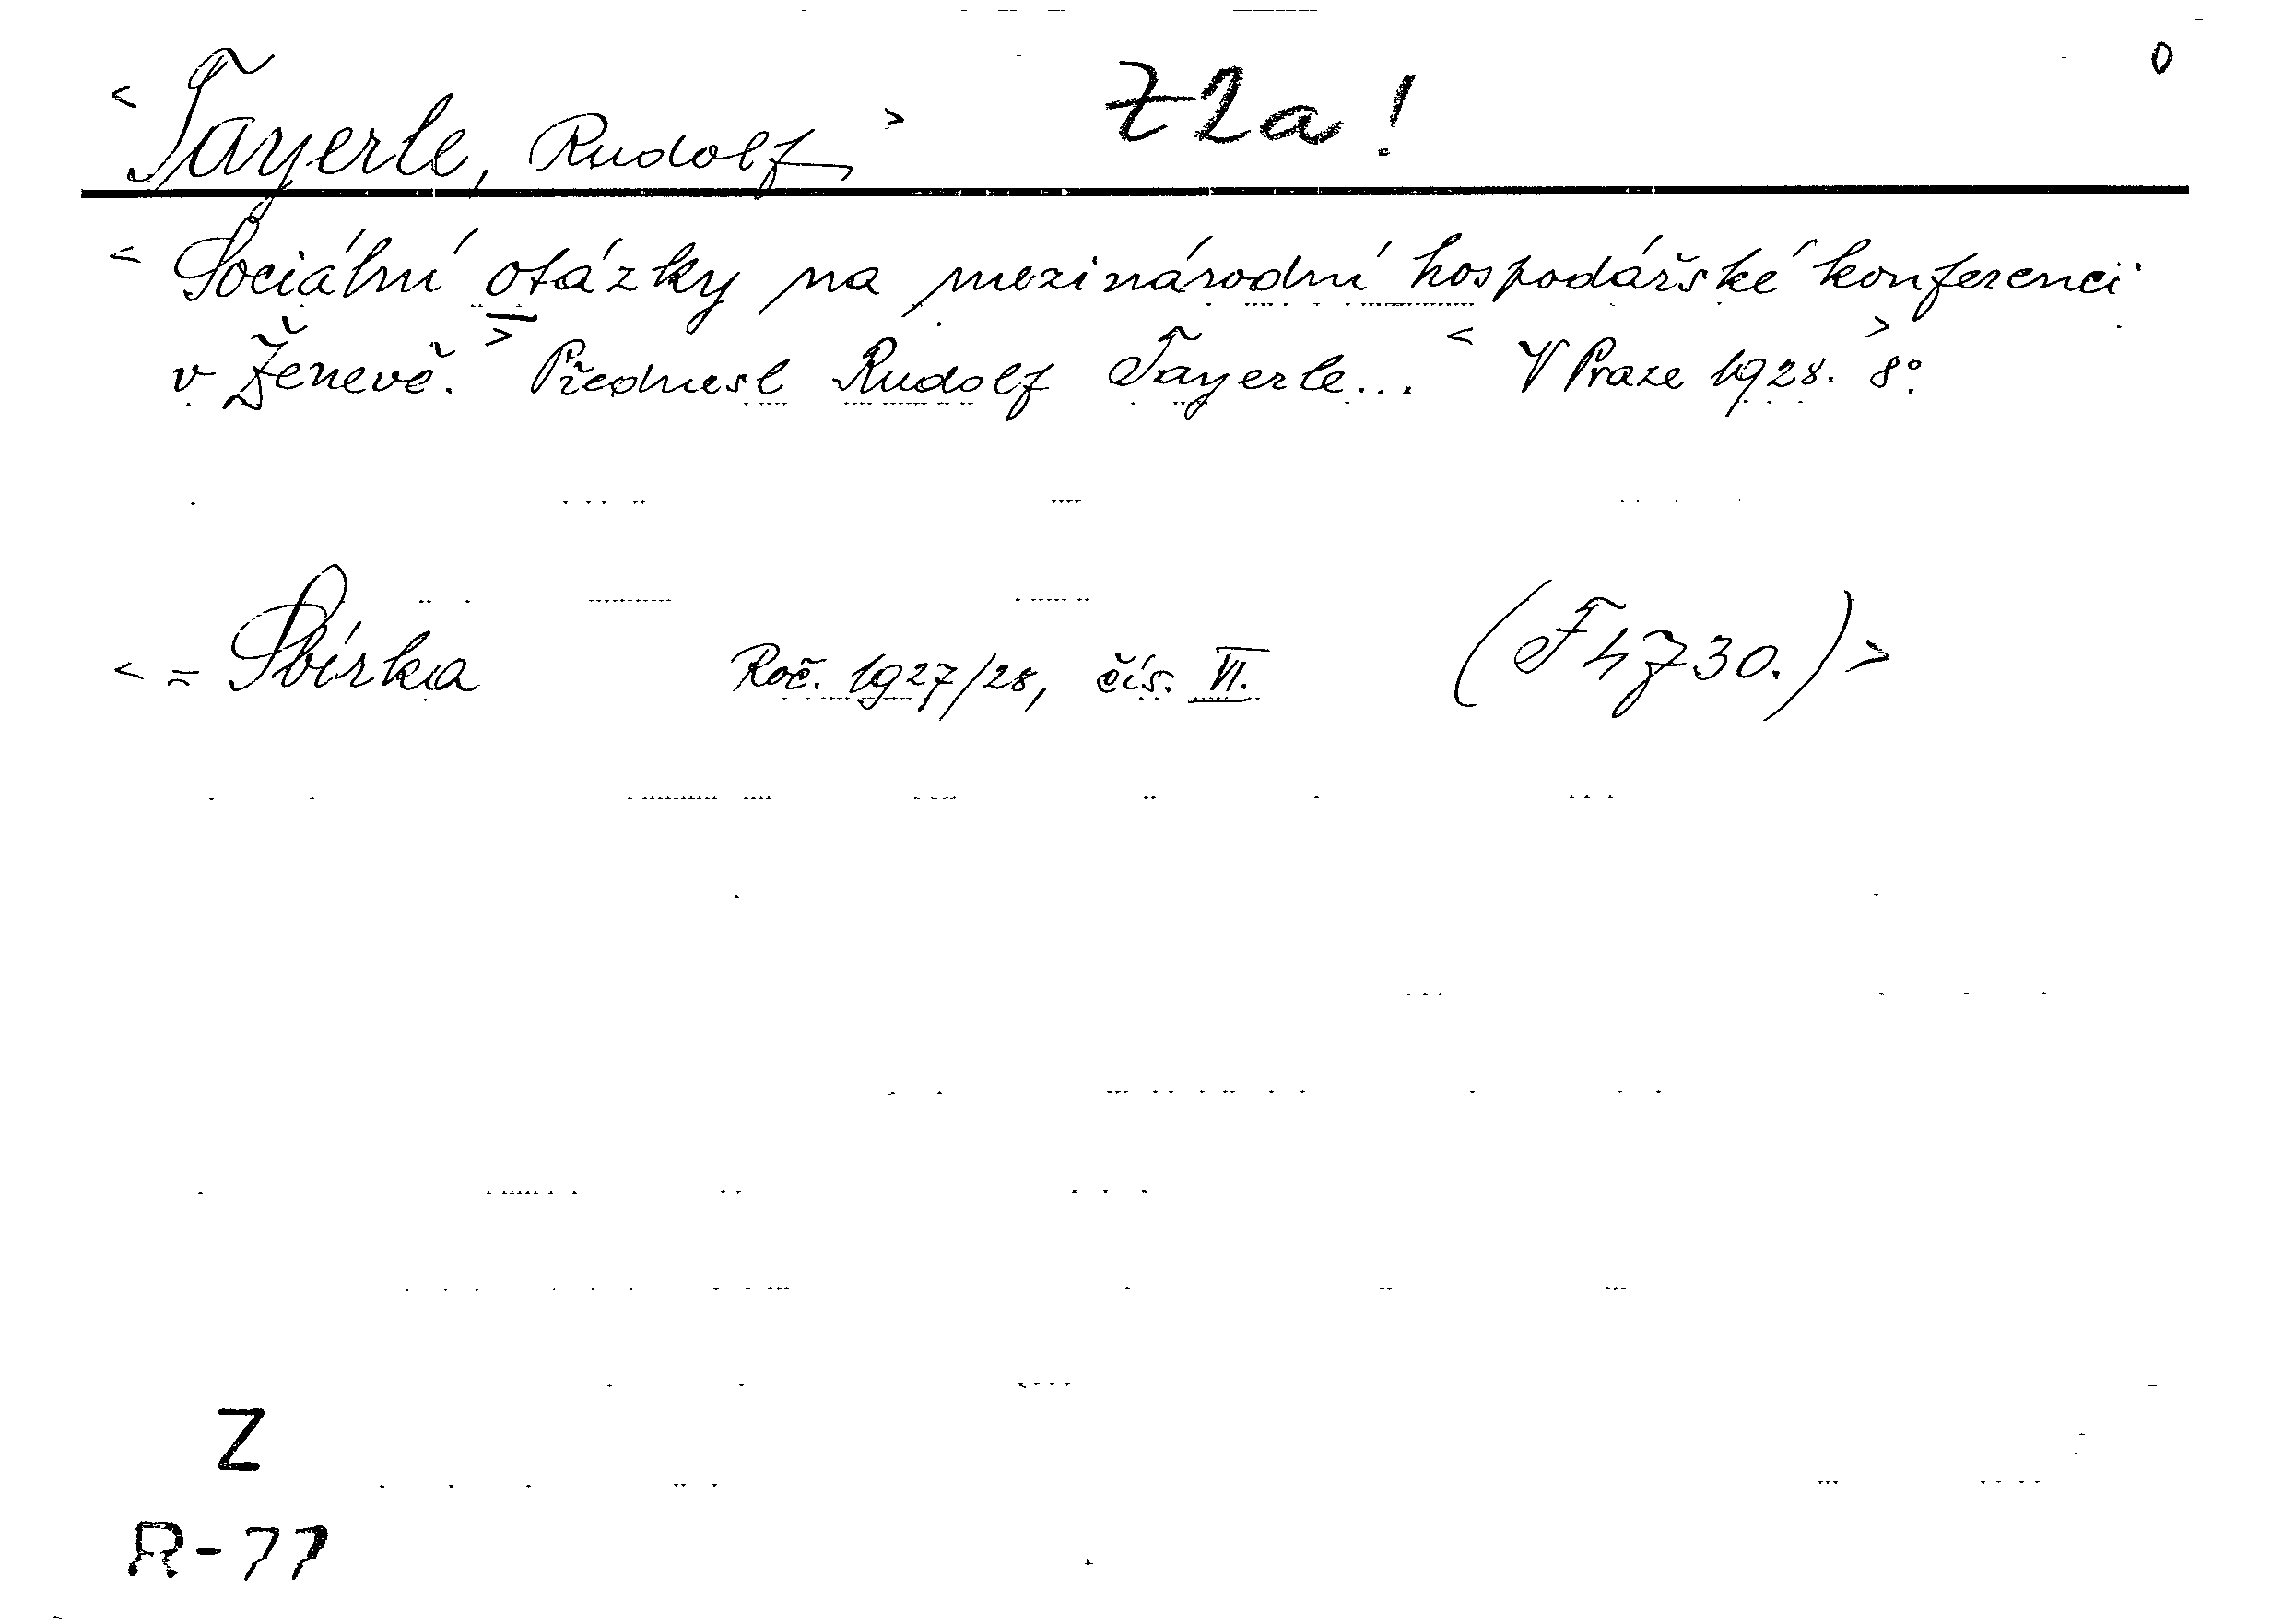 < Tayerle, Rudolf > Z2a! 0
< Sociální otázky na mezinárodní hospodářské konferenci
v Ženevě. > Přednesl Rudolf Tayerle... < V Praze 1928. > 8°.
< = Sbírka Roč. 1927/28, čís. VI. (F 4730.) >
Z
R-77